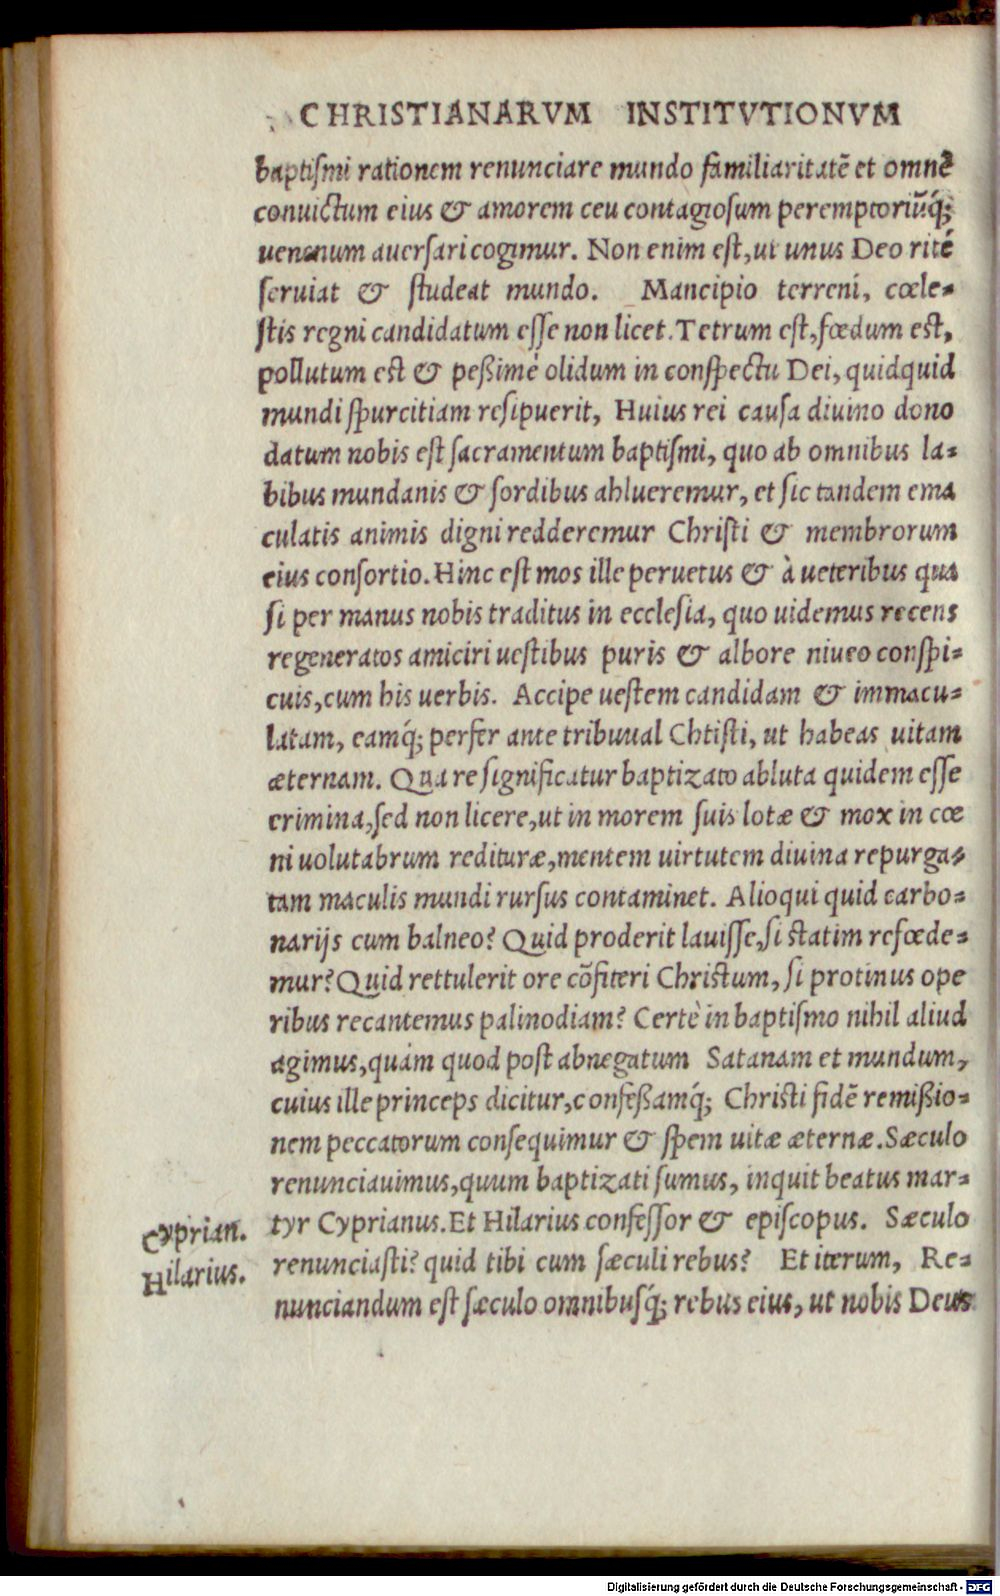 CHRISTIANARVM INSTITVTIONVM
baptiſmi rationem renunciare mundo familiaritatē et omnē
conuictum eius & amorem ceu contagioſum peremptoriūq́;
uenenum auerſari cogimur. Non enim eſt, ut unus Deo rité
ſeruiat & ſtudeat mundo. Mancipio terreni, cœle-
ſtis regni candidatum eſſe non licet. Tetrum eſt, fœdum eſt,
pollutum est & peßimè olidum in conſpectu Dei, quidquid
mundi ſpurcitiam reſipuerit, Huius rei cauſa diuino dono
datum nobis eſt ſacramentum baptiſmi, quo ab omnibus la-
bibus mundanis & ſordibus ablueremur, et ſic tandem ema
culatis animis digni redderemur Chriſti & membrorum
eius conſortio. Hinc eſt mos ille peruetus & à ueteribus qua
ſi per manus nobis traditus in eccleſia, quo uidemus recens
regeneratos amiciri ueſtibus puris & albore niueo conſpi-
cuis, cum his uerbis. Accipe ueſtem candidam & immacu-
latam, eamq́; perfer ante tribuual Chtiſti, ut habeas uitam
æternam. Qua re ſignificatur baptizato abluta quidem eſſe
crimina, ſed non licere, ut in morem ſuis lotæ & mox in cœ
ni uolutabrum redituræ, mentem uirtutem diuina repurga-
tam maculis mundi rurſus contaminet. Alioqui quid carbo-
narijs cum balneo? Quid proderit lauiſſe, ſi statim refœde-
mur? Quid rettulerit ore cōfiteri Christum, ſi protinus ope
ribus recantemus palinodiam? Certè in baptiſmo nihil aliud
agimus, quàm quod post abnegatum Satanam et mundum,
cuius ille princeps dicitur, confeßamq́; Christi fidē remißio-
nem peccatorum conſequimur & ſpem uitæ æternæ. Sæculo
renunciauimus, quum baptizati ſumus, inquit beatus mar-
Cyprian. tyr Cyprianus. Et Hilarius confeſſor & epiſcopus. Sæculo
Hilarius. renunciaſti? quid tibi cum ſæculi rebus? Et iterum, Re-
nunciandum eſt ſæculo omnibuſq́; rebus eius, ut nobis Deus
Digitalisierung gefördert durch die Deutsche Forschungsgemeinschaft - DFG